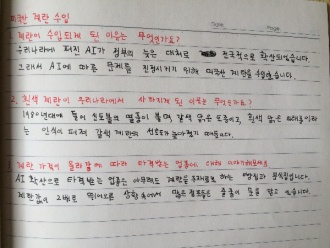 미국산 계란 수입
1. 계란이 수입되게 된 이유는 무엇인가요?
우리나라에 퍼진 AI가 정부의 늦은 대처로 전국적으로 확산되었습니다.
그래서 AI에 따른 문제를 진정시키기 위해 미국산 계란을 수입했습니다.
2. 흰색 계란이 우리나라에서 사라지게 된 이유는 무엇인가요?
1980년대에 들어 신토불이 열풍이 불며 갈색 닭은 토종이고, 흰색 닭은 외래종이라
는 인식이 퍼져 갈색 계란의 선호도가 높아졌기 때문입니다.
3. 계란 가격이 올라감에 따라 타격받는 업종에 대해 이야기해보세요.
AI 확산으로 타격받는 업종은 아무래도 계란을 주재료로 하는 빵집과 분식집입니다.
계란값이 2배로 뛰어오른 상황 속에서 많은 점포들은 줄줄이 문을 닫고 있습니다.